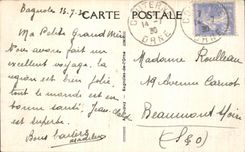 Bagnoles 13.7.3
CARTE POSTALE
COUTERNE
14-7
30
ORNE
Ma Petite Grand'Mère
Nous avons fait un
excellent voyage, la
région est bien jolie
tout le monde est en
bonne santé, Jean
est superbe.
Bons baisers
Madeleine
Madame Roulleau
19 Avenue Carnot
Beaumont s/Oise
(S&O)